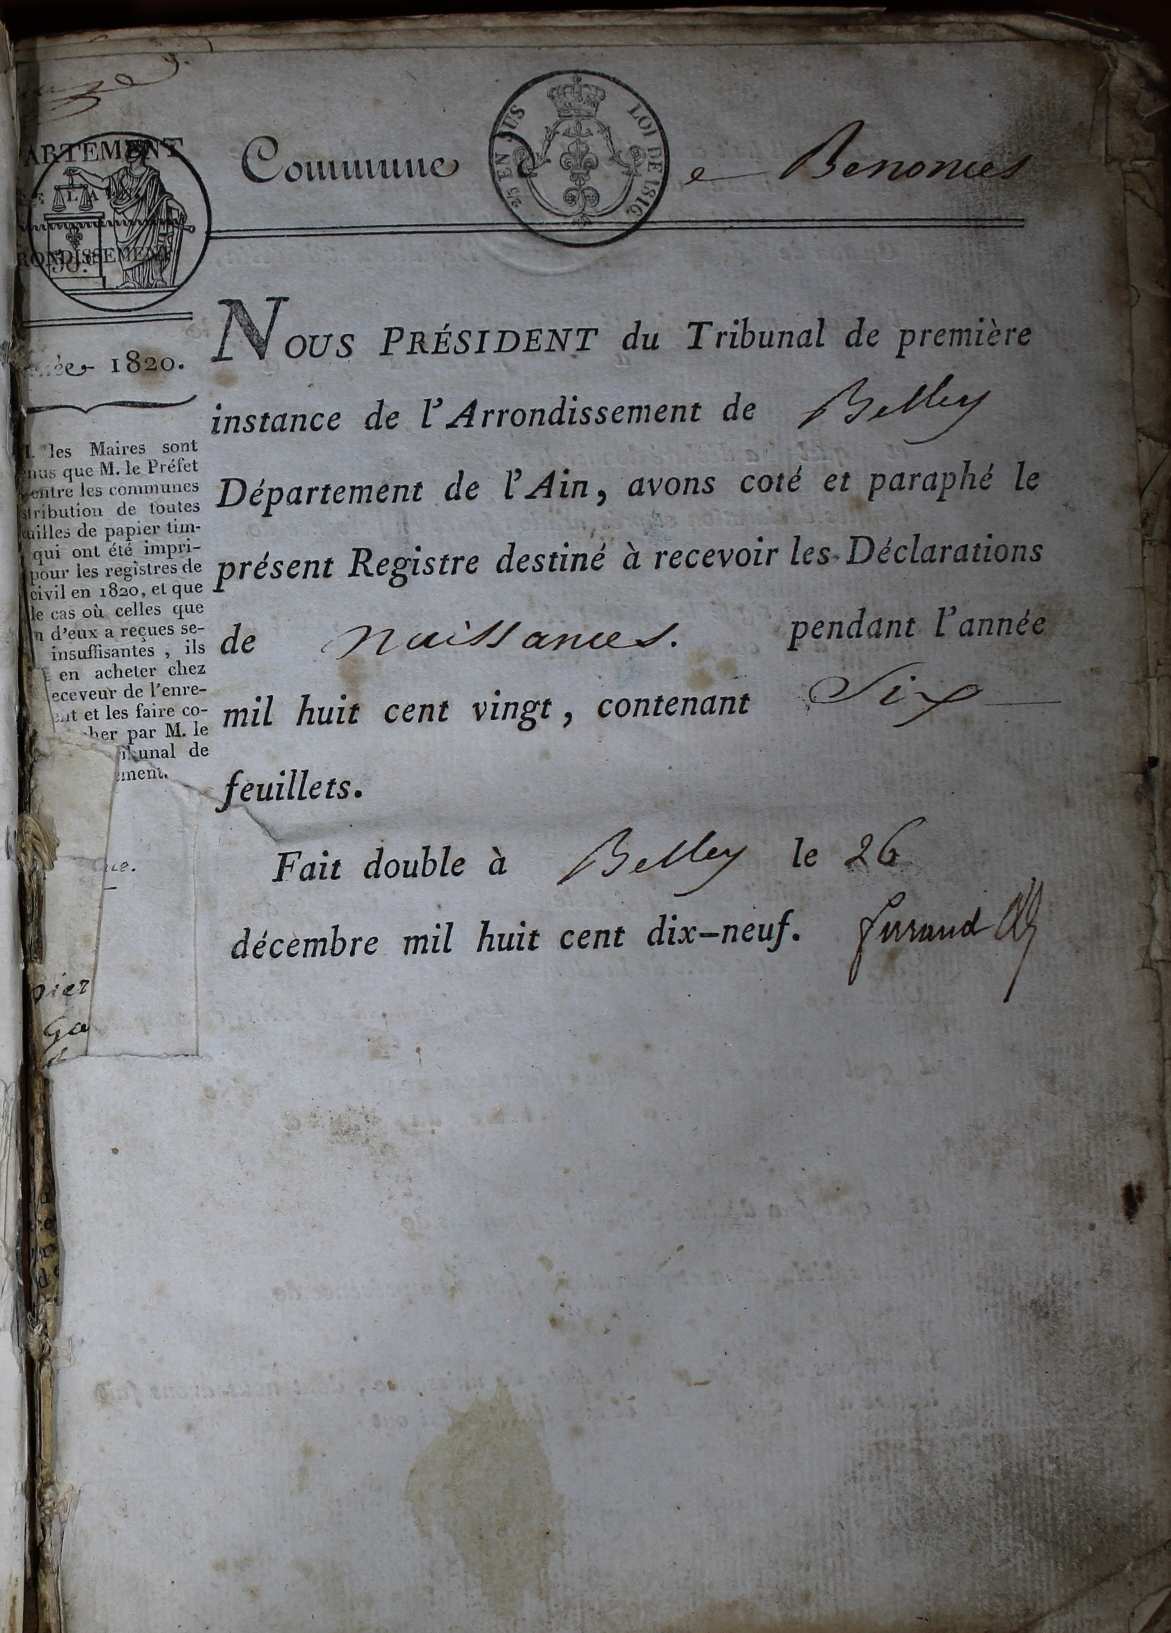 Commune de Benonces
25 EN SUS
LOI DE 1816
ARTEMENT
LA
RONDISSEMENT
50.
1820.
NOUS PRÉSIDENT du Tribunal de première
instance de l'Arrondissement de Belley
Département de l'Ain, avons coté et paraphé le
présent Registre destiné à recevoir les Déclarations
de naissances. pendant l'année
mil huit cent vingt, contenant Six
feuillets.
Fait double à Belley le 26
décembre mil huit cent dix-neuf.
les Maires sont
nus que M. le Préfet
entre les communes
stribution de toutes
uilles de papier tim-
qui ont été impri-
pour les registres de
civil en 1820, et que
le cas où celles que
n d'eux a reçues se-
insuffisantes, ils
en acheter chez
eceveur de l'enre-
ent et les faire co-
her par M. le
ibunal de
ement.